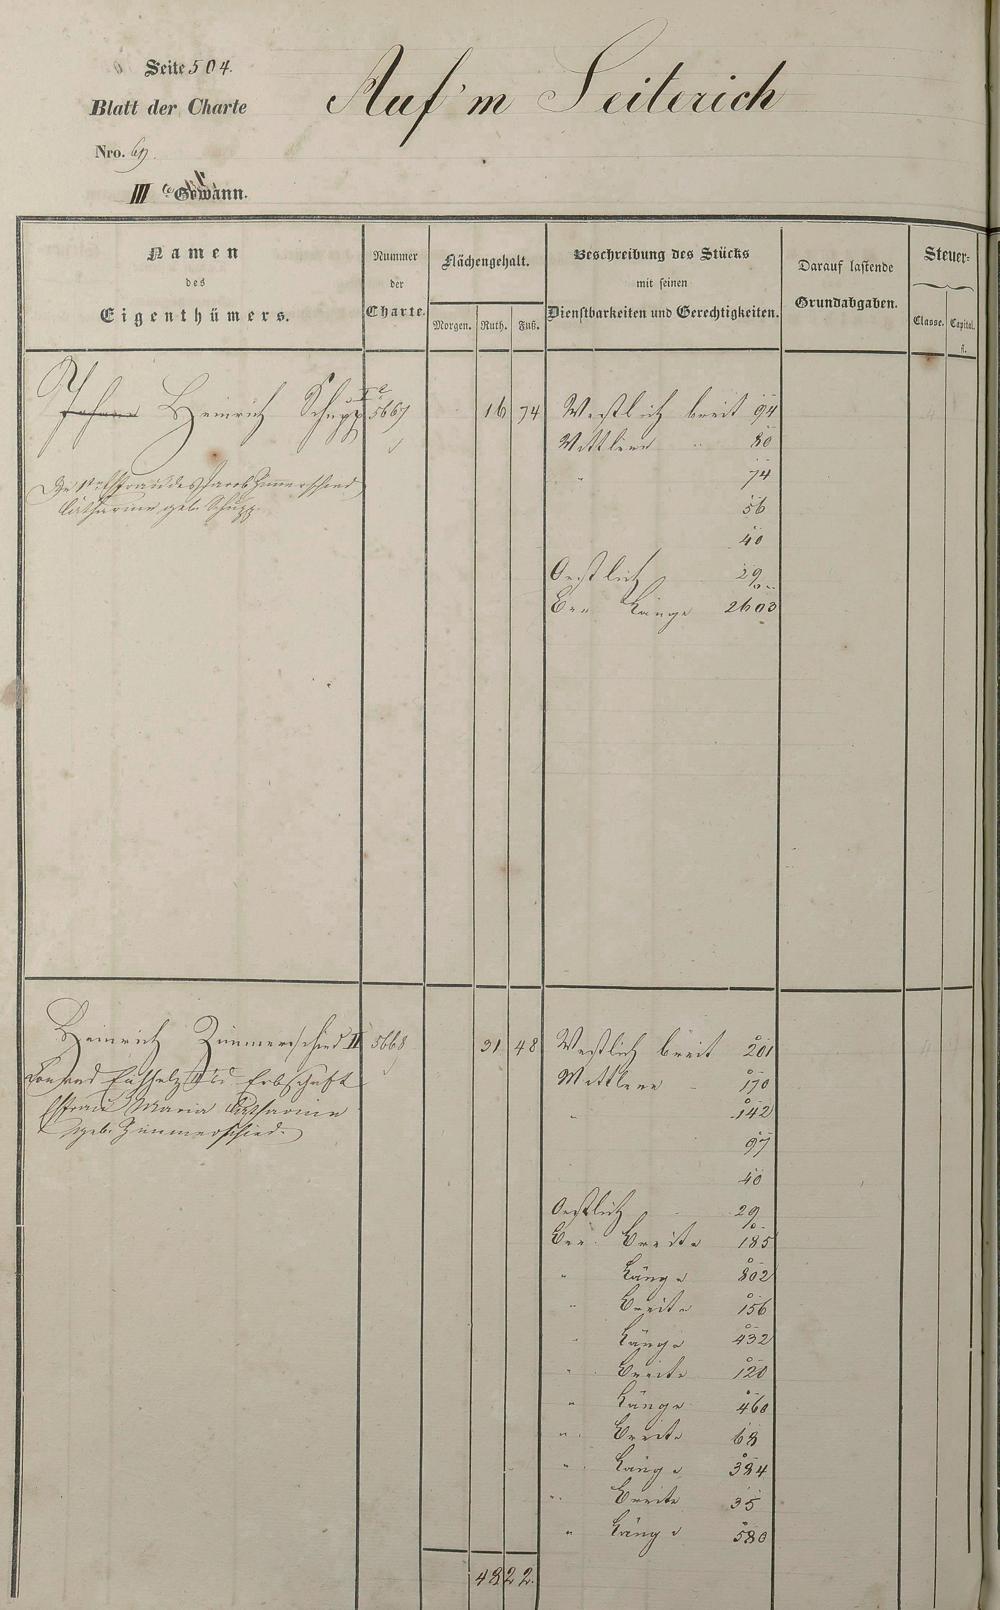 Seite 504.
Auf'm Seiterich
Blatt der Charte
Nro. 69.
III te Gewann.
Namen
des
Eigenthümers.
Nummer
der
Charte.
Flächengehalt.
Morgen. Ruth. Fuß.
Beschreibung des Stücks
mit seinen
Dienstbarkeiten und Gerechtigkeiten.
Darauf lastende
Grundabgaben.
Steuer-
Classe. Capital.
fl.
Heinrich Schupp 5667 16 74 Westlich breit 94
Mittlere " 80
" 74
56
40
Oestlich 29
Die Länge 2603
Ehefrau des Jacob Zimmerschied
Catharine geb. Schupp.
Heinrich Zimmerschied II 5668 31 48 Westlich breit 201
Mittlere " 170
" 142
97
40
Oestlich 29
Die Breite 185
" Länge 802
" Breite 156
" Länge 432
" Breite 120
" Länge 460
" Breite 68
" Länge 384
" Breite 35
" Länge 580
Erbschaft
Ehefrau Maria Catharine
geb. Zimmerschied.
48 22.